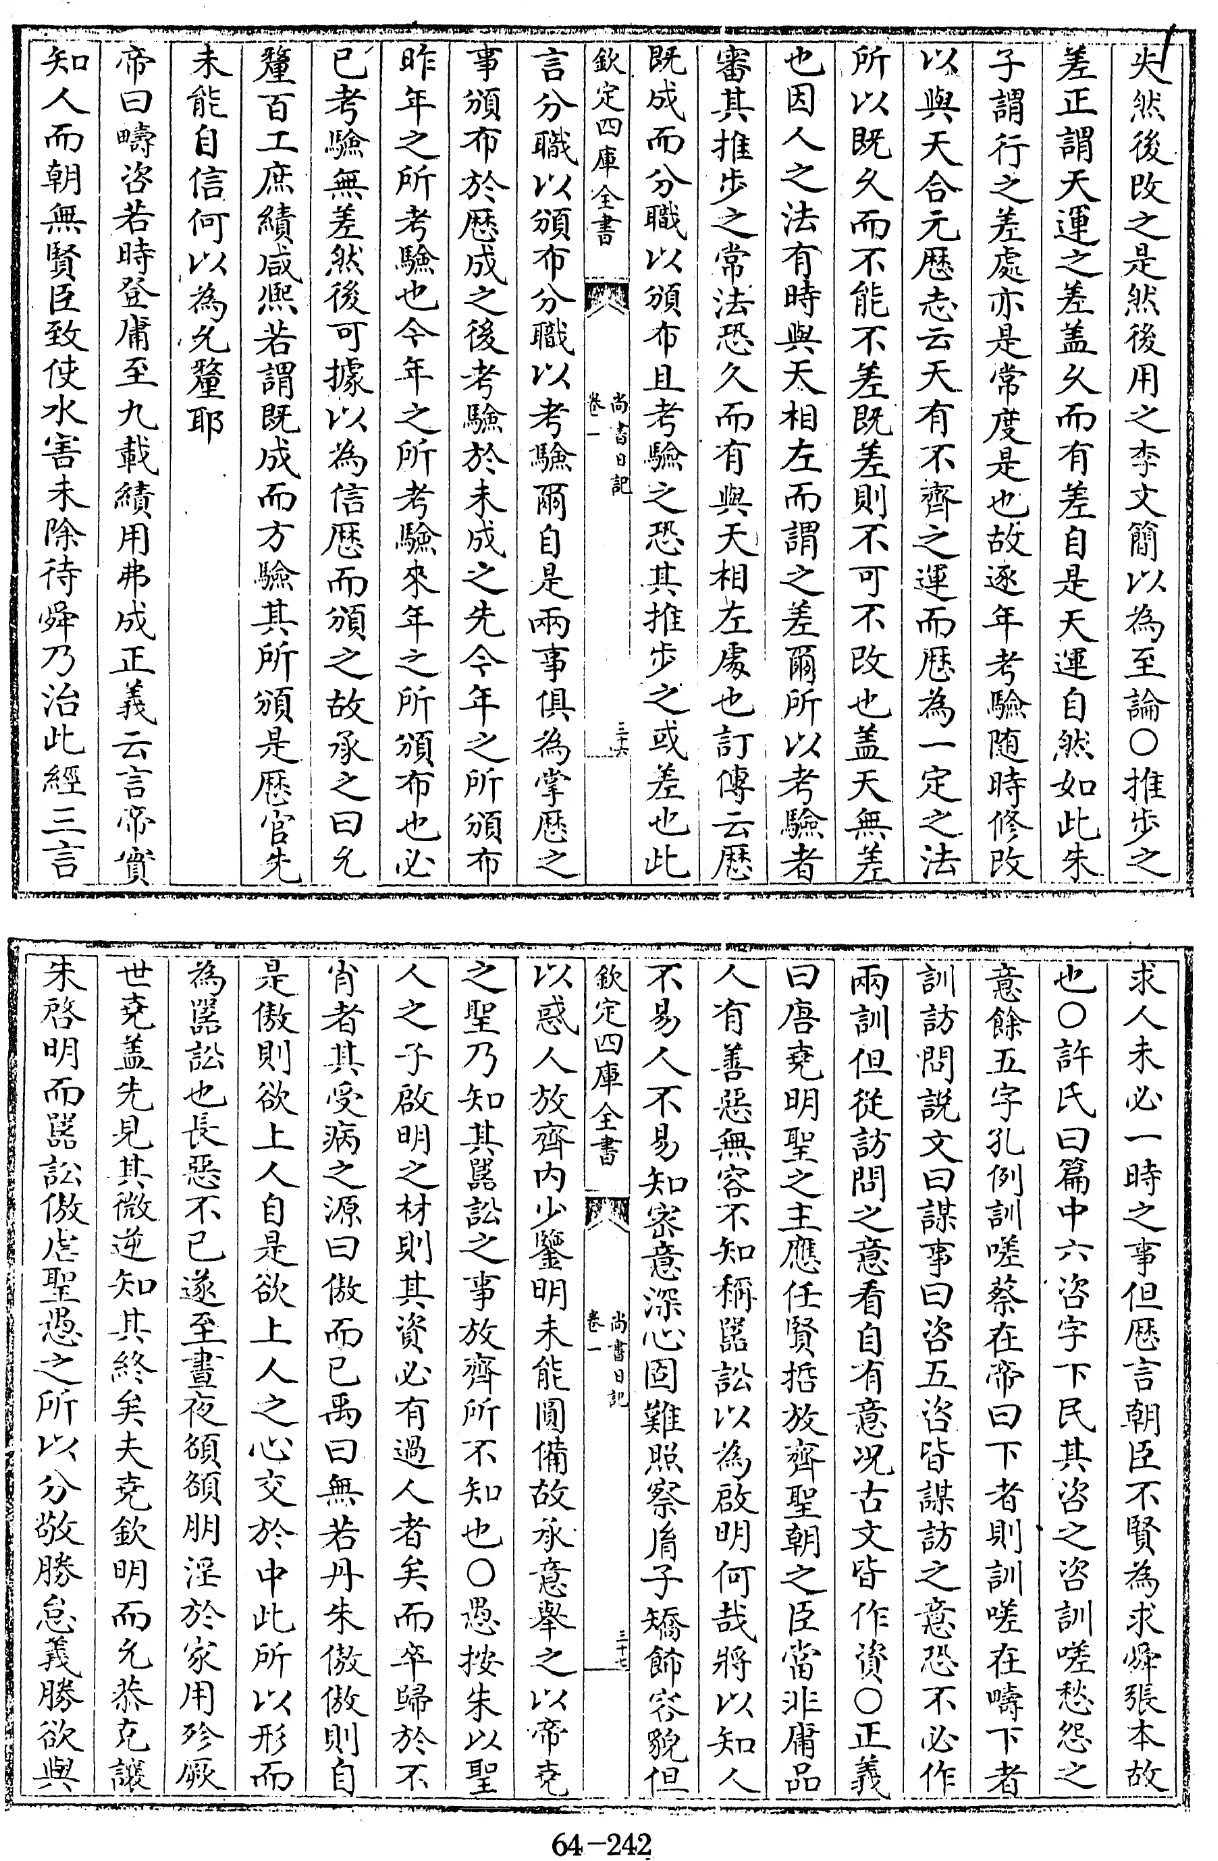 失然後改之是然後用之李文簡以為至論〇推步之
差正謂天運之差盖久而有差自是天運自然如此朱
子謂行之差處亦是常度是也故逐年考驗随時修改
以與天合元厯志云天有不齊之運而厯為一定之法
所以既久而不能不差既差則不可不改也盖天無差
也因人之法有時與天相左而謂之差爾所以考驗者
審其推步之常法恐久而有與天相左處也訂傳云厯
既成而分職以頒布且考驗之恐其推步之或差也此
欽定四庫全書
尚書日記
卷一
三十六
言分職以頒布分職以考驗爾自是兩事俱為掌厯之
事頒布於厯成之後考驗於未成之先今年之所頒布
昨年之所考驗也今年之所考驗來年之所頒布也必
已考驗無差然後可據以為信厯而頒之故承之曰允
釐百工庶績咸熙若謂既成而方驗其所頒是厯官先
未能自信何以為允釐耶
帝曰疇咨若時登庸至九載績用弗成正義云言帝實
知人而朝無賢臣致使水害未除待舜乃治此經三言
求人未必一時之事但厯言朝臣不賢為求舜張本故
也〇許氏曰篇中六咨字下民其咨之咨訓嗟愁怨之
意餘五字孔例訓嗟蔡在帝曰下者則訓嗟在疇下者
訓訪問說文曰謀事曰咨五咨皆謀訪之意恐不必作
兩訓但從訪問之意看自有意况古文皆作資〇正義
曰唐堯明聖之主應任賢哲放齊聖朝之臣當非庸品
人有善惡無容不知稱嚚訟以為啟明何哉將以知人
不易人不易知密意深心固難照察胤子矯飾容貌但
欽定四庫全書
尚書日記
卷一
三十七
以惑人放齊内少鑒明未能圓備故承意舉之以帝堯
之聖乃知其嚚訟之事放齊所不知也〇愚按朱以聖
人之子啟明之材則其資必有過人者矣而卒歸於不
肖者其受病之源曰傲而已禹曰無若丹朱傲傲則自
是傲則欲上人自是欲上人之心交於中此所以形而
為嚚訟也長惡不已遂至晝夜頟頟朋淫於家用殄厥
世堯盖先見其微逆知其終矣夫堯欽明而允恭克讓
朱啓明而嚚訟傲虐聖愚之所以分敬勝怠義勝欲與
64-242